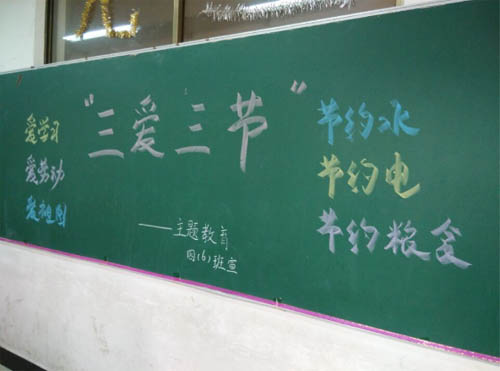 “三爱三节”
爱学习
爱劳动
爱祖国
节约水
节约电
节约粮食
——主题教育
四(6)班宣